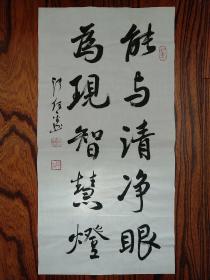 能与清净眼
為現智慧燈